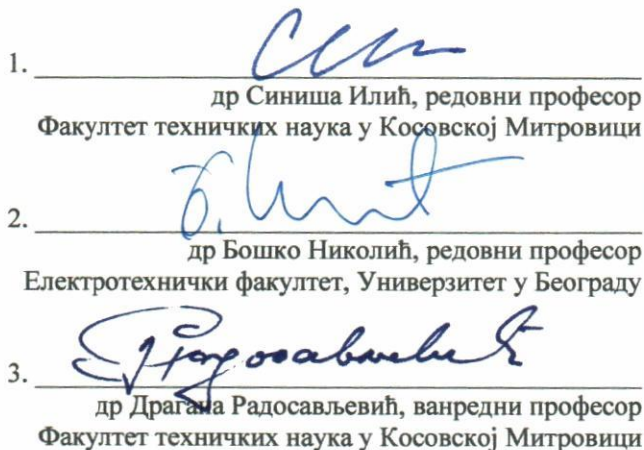 1.
др Синиша Илић, редовни професор
Факултет техничких наука у Косовској Митровици
2.
др Бошко Николић, редовни професор
Електротехнички факултет, Универзитет у Београду
3.
др Драгана Радосављевић, ванредни професор
Факултет техничких наука у Косовској Митровици